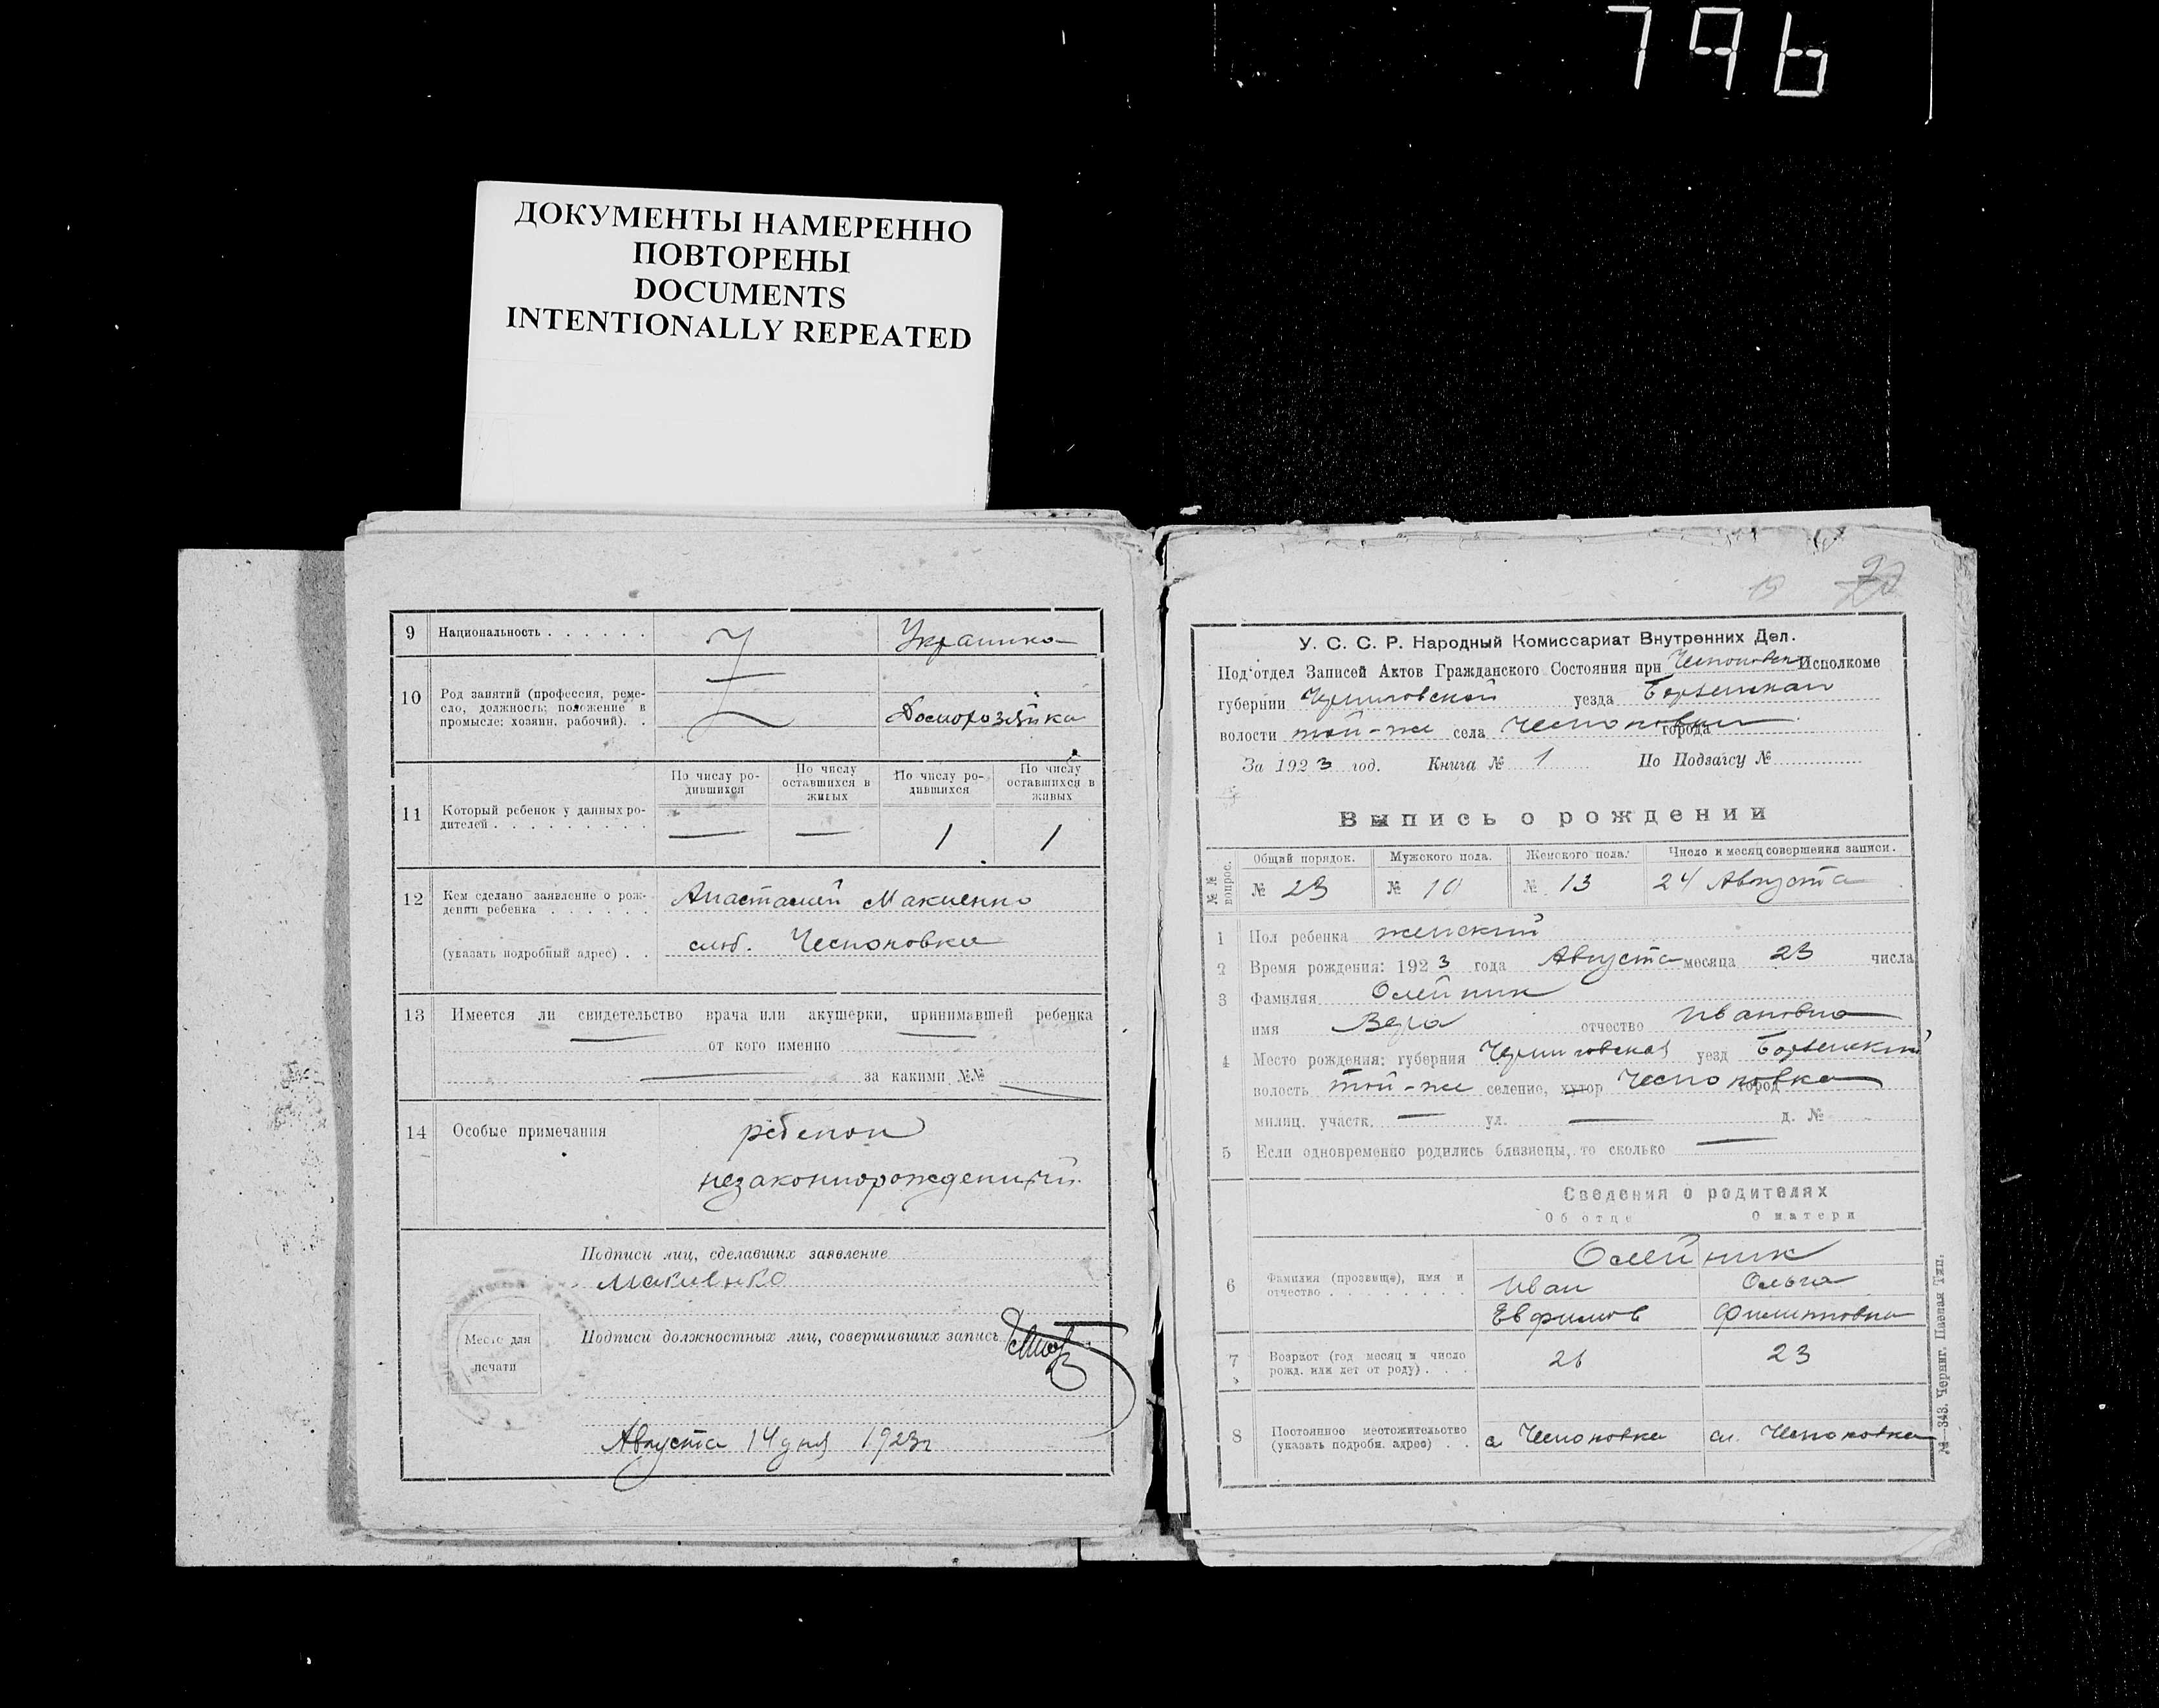 796
ДОКУМЕНТЫ НАМЕРЕННО
ПОВТОРЕНЫ
DOCUMENTS
INTENTIONALLY REPEATED
9 Национальность . . . . . . Украинка
10 Род занятий (профессия, реме-
сло, должность; положение в
промысле: хозяин, рабочий). . Домохозяйка
По числу ро-
дившихся
По числу
оставшихся в
живых
По числу ро-
дившихся
По числу
оставшихся в
живых
11 Который ребенок у данных ро-
дителей . . . . . . . . . — — 1 1
12 Кем сделано заявление о рож-
дении ребенка . . . . . . Анастасией Макиенко
(указать подробный адрес) . . Чесноковка
13 Имеется ли свидетельство врача или акушерки, принимавшей ребенка
— от кого именно —
— за какими №№ —
14 Особые примечания ребенок
незаконнорожденный.
Подписи лиц, сделавших заявление
Макиенко
Место для
печати
Подписи должностных лиц, совершивших запись
Августа 14 дня 1923г
19 22
У. С. С. Р. Народный Комиссариат Внутренних Дел.
Под'отдел Записей Актов Гражданского Состояния при Исполкоме
губернии Черниговской уезда Борзенскаго
волости той-же села Чесноковки города
За 1923 год. Книга № 1 По Подзагсу №
Выпись о рождении
№ № вопрос.
Общий порядок. Мужского пола. Женского пола. Число и месяц совершения записи.
№ 23 № 10 № 13 24 Августа
1 Пол ребенка женский
2 Время рождения: 1923 года Августа месяца 23 числа
3 Фамилия Олейник
имя Вера отчество Ивановна
4 Место рождения: губерния Черниговская уезд Борзенский
волость той-же селение, хутор Чесноковка город
милиц. участк. — ул. — д. №
5 Если одновременно родились близнецы, то сколько —
Сведения о родителях
Об отце О матери
6 Фамилия (прозвище), имя и
отчество . . . . . . . .
Олейник
Иван Ольга
Евфимов Филипповна
7 Возраст (год месяц и число
рожд. или лет от роду) . . . 26 23
8 Постоянное местожительство
(указать подробн. адрес) . . с Чесноковка сл. Чесноковка
№ 343. Черниг. Паевая Тип.